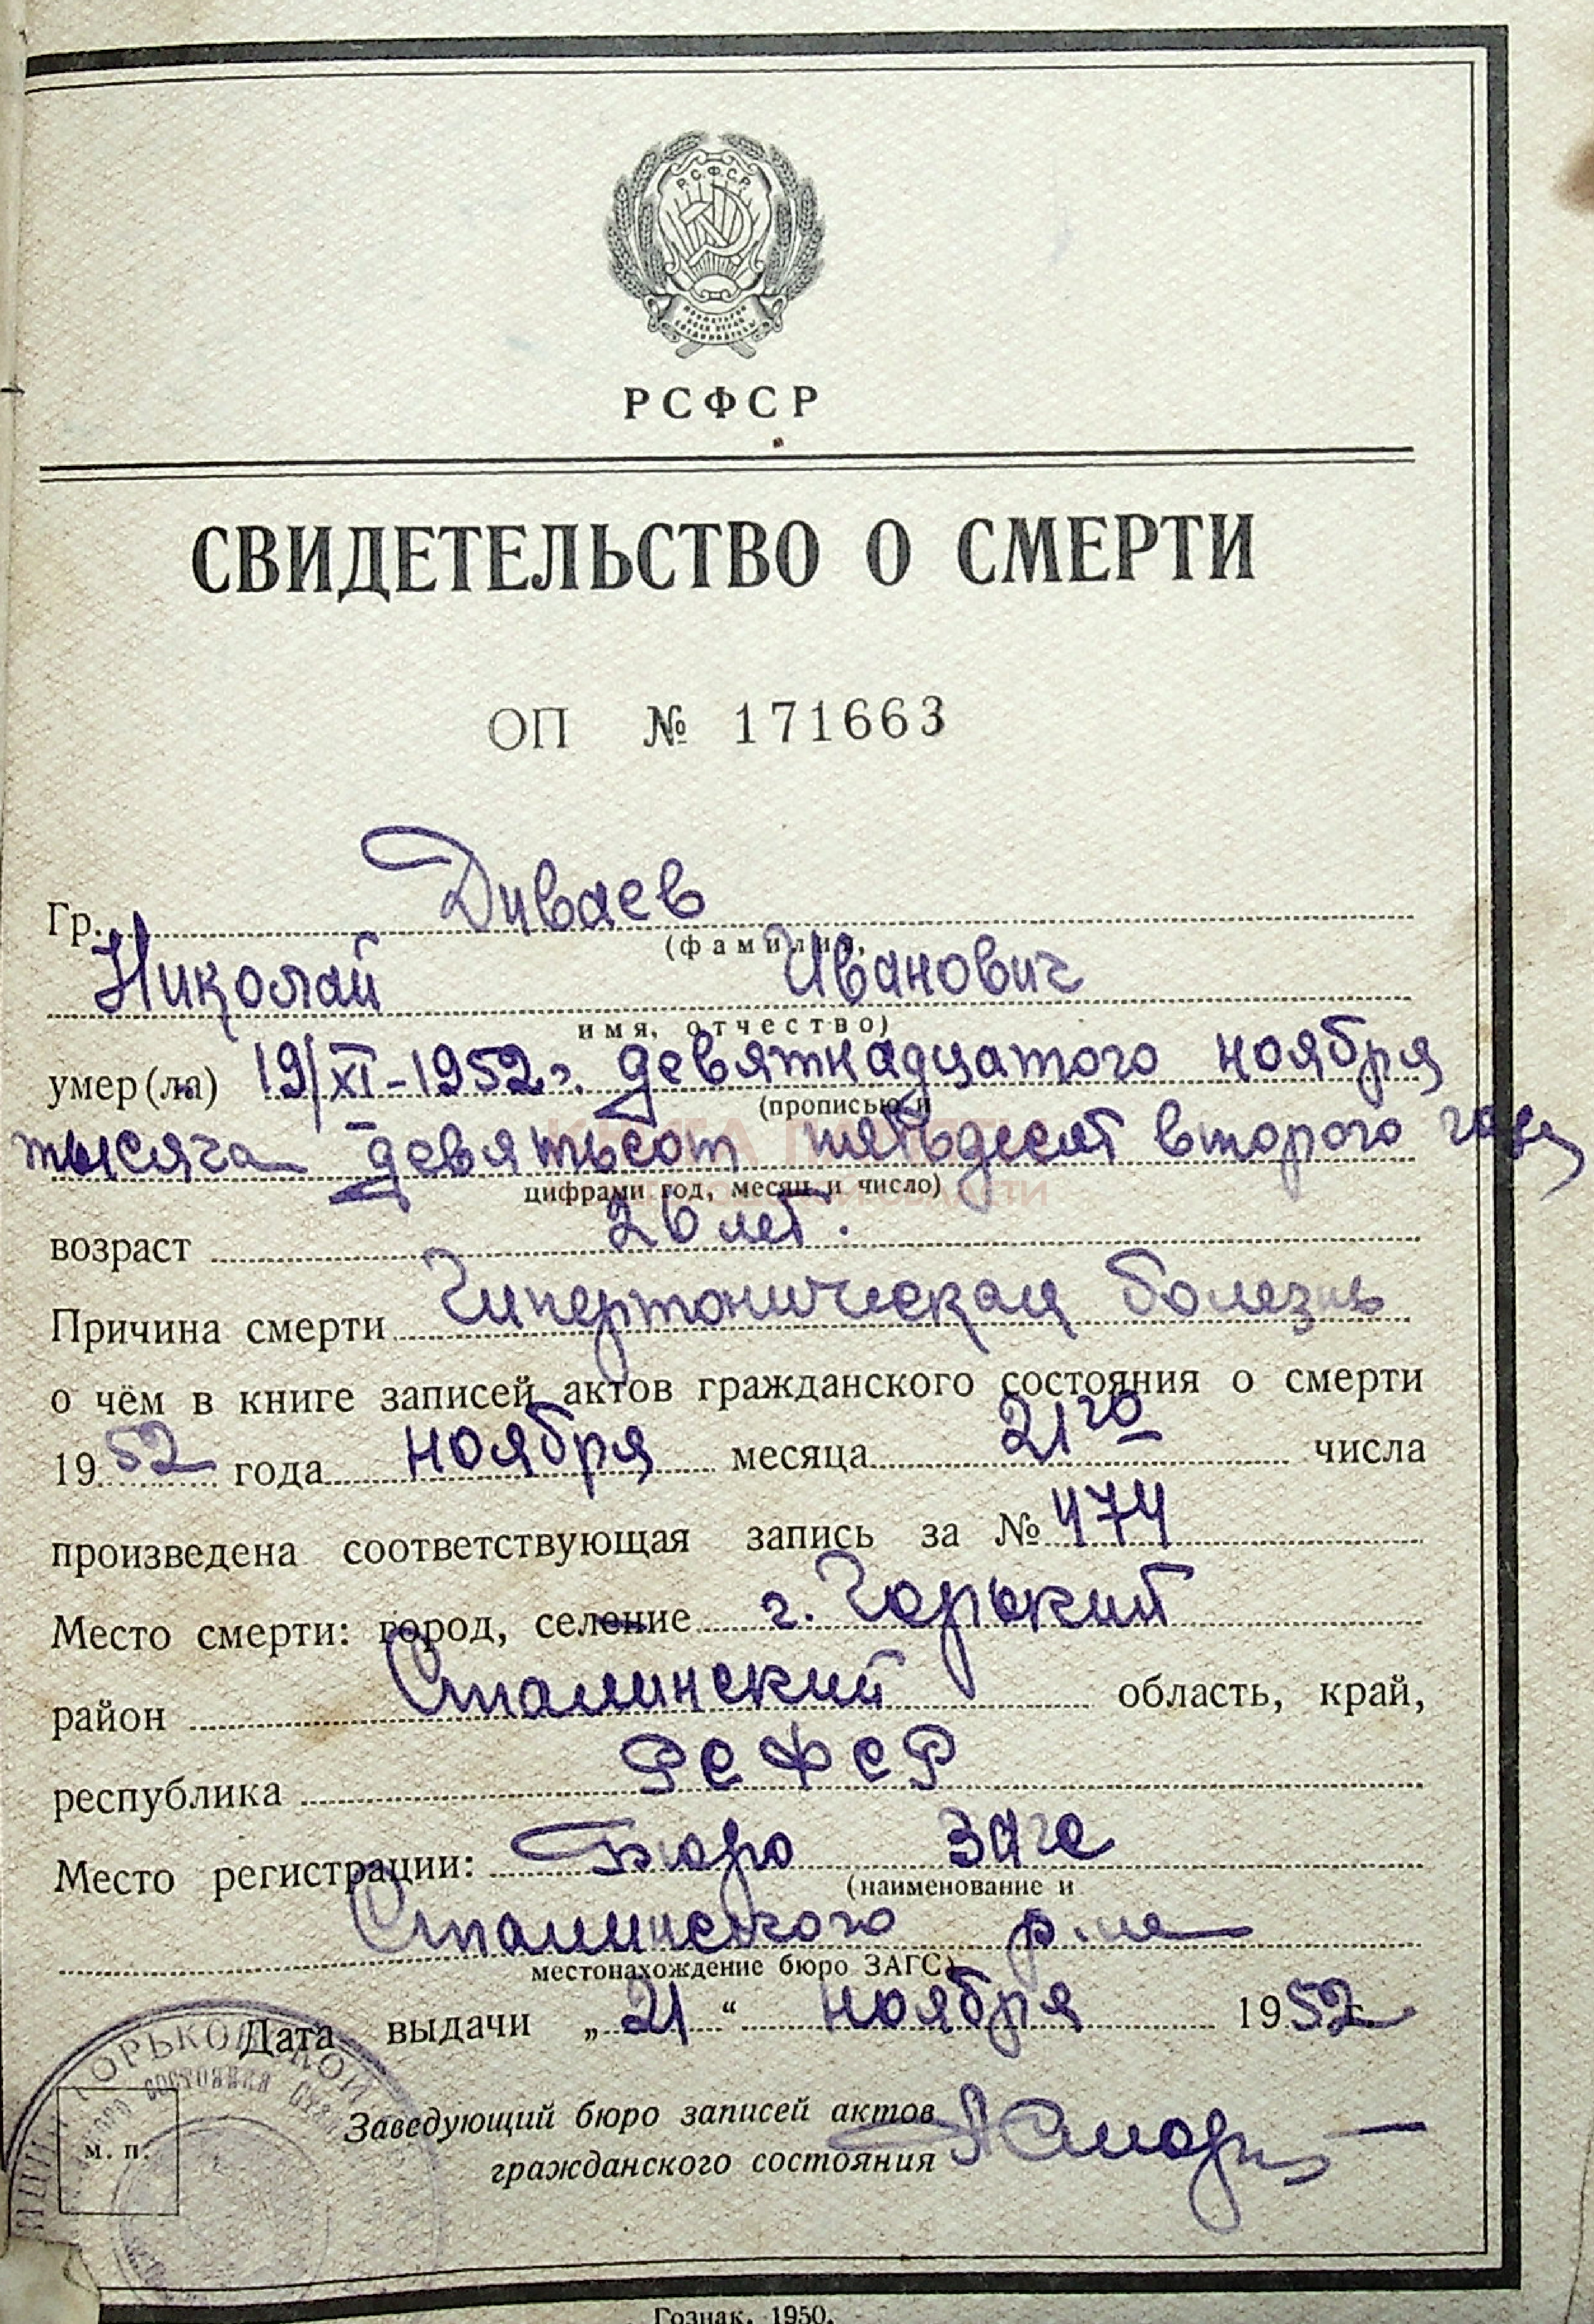 Р.С.Ф.С.Р.
РСФСР
СВИДЕТЕЛЬСТВО О СМЕРТИ
ОП № 171663
Гр. Диваев
(фамилия,
Николай Иванович
имя, отчество)
умер(ла) 19/XI-1952г. девятнадцатого ноября
(прописью и
тысяча девятьсот пятьдесят второго года
цифрами год, месяц и число)
возраст 26 лет.
Причина смерти Гипертоническая болезнь
о чём в книге записей актов гражданского состояния о смерти
1952 года ноября месяца 21го числа
произведена соответствующая запись за № 474
Место смерти: город, селение г. Горький
район Сталинский область, край,
республика РСФСР
Место регистрации: Бюро Загс
(наименование и
Сталинского р-на
местонахождение бюро ЗАГС)
Дата выдачи „21“ ноября 1952 г.
ГОРЬКОВСКОЙ
СОСТОЯНИЯ
м. п.
Заведующий бюро записей актов
гражданского состояния
Гознак. 1950.